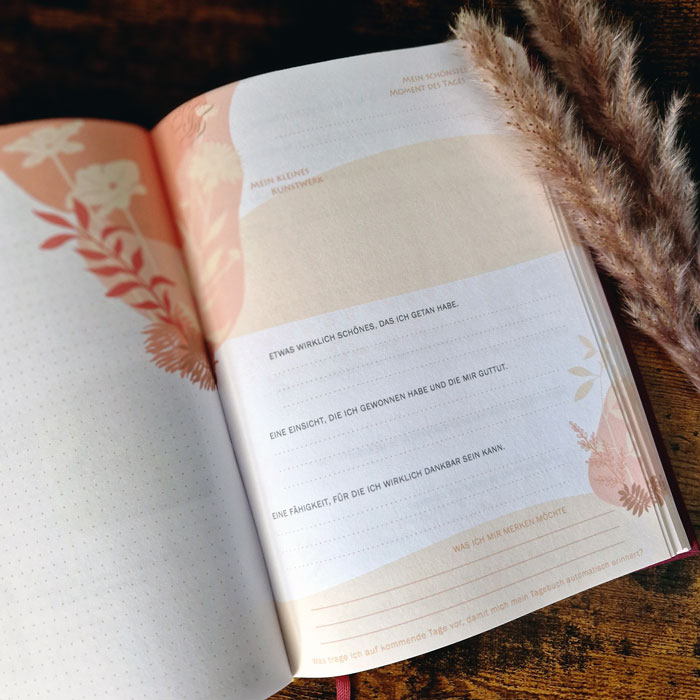 MEIN SCHÖNSTER
MOMENT DES TAGES
MEIN KLEINES
KUNSTWERK
ETWAS WIRKLICH SCHÖNES, DAS ICH GETAN HABE.
EINE EINSICHT, DIE ICH GEWONNEN HABE UND DIE MIR GUTTUT.
EINE FÄHIGKEIT, FÜR DIE ICH WIRKLICH DANKBAR SEIN KANN.
WAS ICH MIR MERKEN MÖCHTE
Was trage ich auf kommende Tage vor, damit mich mein Tagebuch automatisch erinnert?